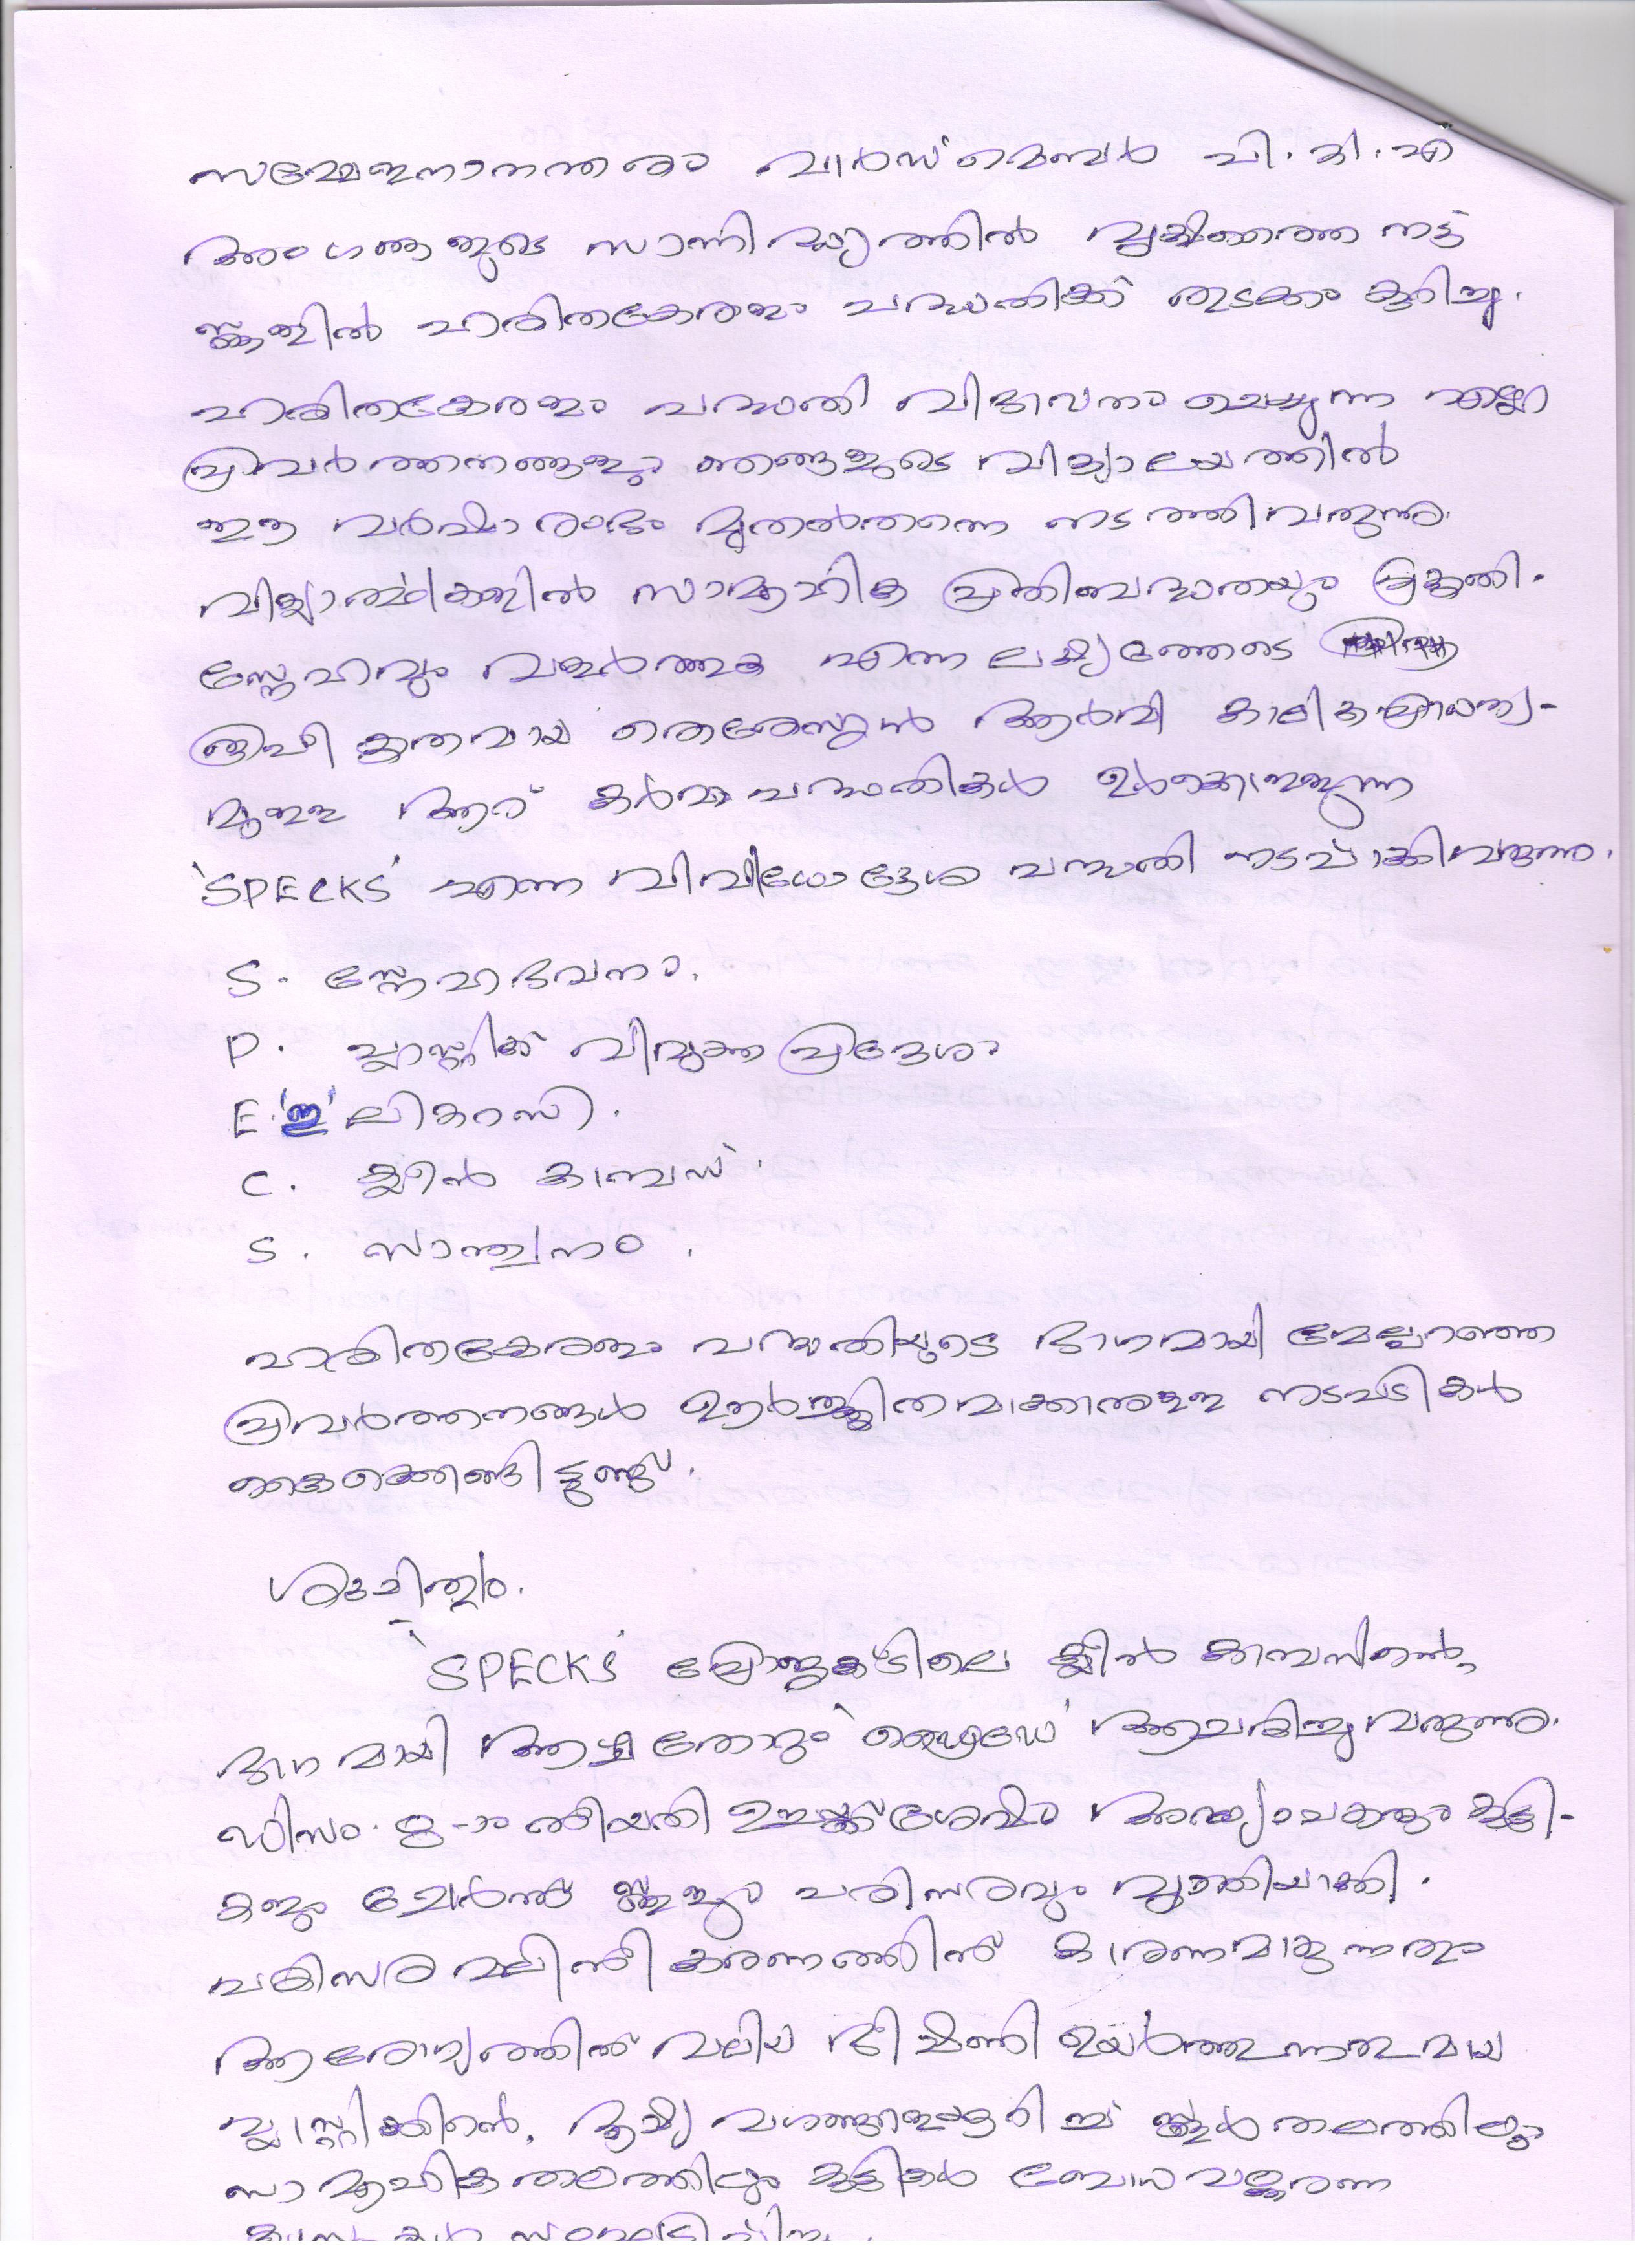 സമ്മേളനാനന്തരം വാർഡ് മെമ്പർ പി.ടി.എ
അംഗങ്ങളുടെ സാന്നിദ്ധ്യത്തിൽ വൃക്ഷത്തൈ നട്ട്
സ്കൂളിൽ ഹരിതകേരളം പദ്ധതിക്ക് തുടക്കം കുറിച്ചു.
ഹരിതകേരളം പദ്ധതി വിഭാവനം ചെയ്യുന്ന എല്ലാ
പ്രവർത്തനങ്ങളും ഞങ്ങളുടെ വിദ്യാലയത്തിൽ
ഈ വർഷാരംഭം മുതൽതന്നെ നടത്തിവരുന്നു.
വിദ്യാർത്ഥികളിൽ സാമൂഹിക പ്രതിബദ്ധതയും പ്രകൃതി-
സ്നേഹവും വളർത്തുക എന്ന ലക്ഷ്യത്തോടെ
രൂപീകൃതമായ തെരേസ്യൻ ആർമി കാലികപ്രാധാന്യ-
മുള്ള ആറ് കർമ്മപദ്ധതികൾ ഉൾക്കൊള്ളുന്ന
'SPECKS' എന്ന വിവിധോദ്ദേശ പദ്ധതി നടപ്പാക്കിവരുന്നു.
S. സ്നേഹഭവനം.
P. പ്ലാസ്റ്റിക് വിമുക്ത പ്രദേശം
E. 'ഇ' ലിറ്ററസി.
C. ക്ലീൻ ക്യാമ്പസ്.
S. സാന്ത്വനം.
ഹരിതകേരളം പദ്ധതിയുടെ ഭാഗമായി മേല്പറഞ്ഞ
പ്രവർത്തനങ്ങൾ ഊർജ്ജിതമാക്കാനുള്ള നടപടികൾ
കൈക്കൊണ്ടിട്ടുണ്ട്.
ശുചിത്വം.
'SPECKS' പ്രൊജക്ടിലെ ക്ലീൻ ക്യാമ്പസിന്റെ
ഭാഗമായി ആഴ്ചതോറും 'ഡ്രൈഡേ' ആചരിച്ചുവരുന്നു.
ഡിസം. 8-ാം തീയതി ഉച്ചയ്ക്ക്ശേഷം അദ്ധ്യാപകരും കുട്ടി-
കളും ചേർന്ന് സ്കൂളും പരിസരവും വൃത്തിയാക്കി.
പരിസര മലിനീകരണത്തിന് കാരണമാകുന്നതും
ആരോഗ്യത്തിന് വലിയ ഭീഷണി ഉയർത്തുന്നതുമായ
പ്ലാസ്റ്റിക്കിന്റെ ദൂഷ്യ വശങ്ങളെക്കുറിച്ച് സ്കൂൾ തലത്തിലും
സാമൂഹിക തലത്തിലും കുട്ടികൾ ബോധവല്ക്കരണ
ക്ലാസുകൾ സംഘടിപ്പിച്ചു.